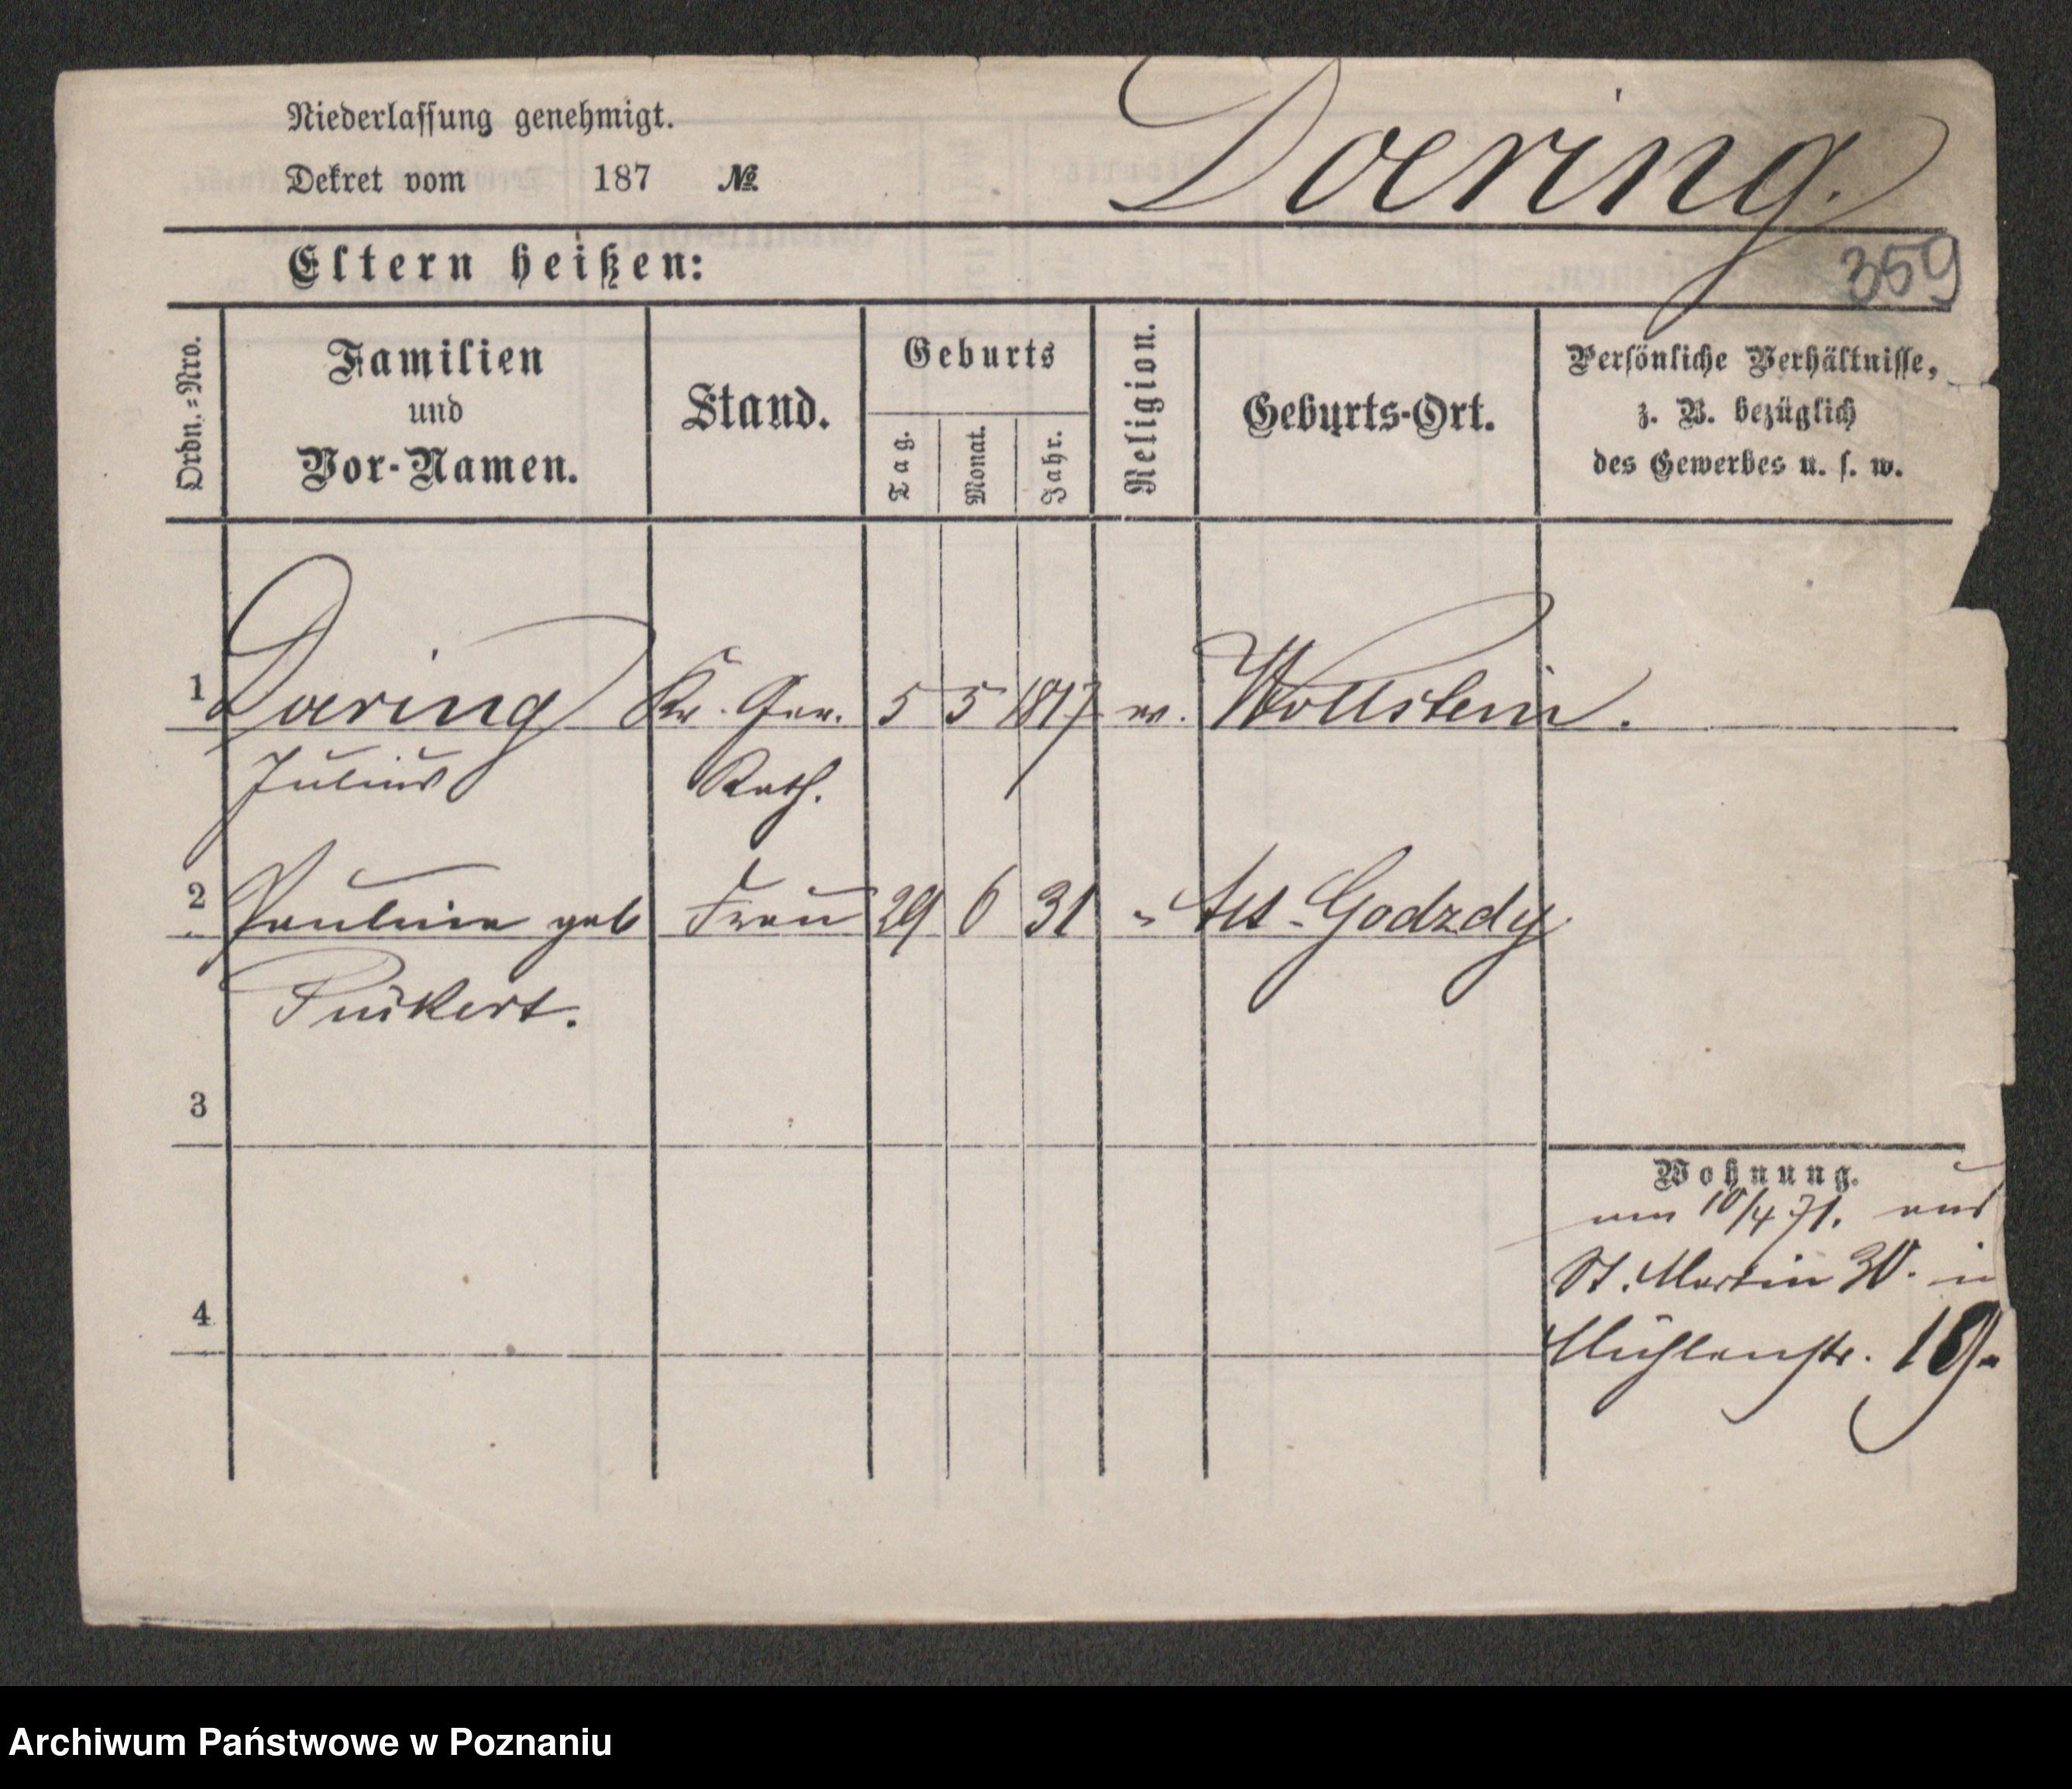 Niederlassung genehmigt.
Doering.
Dekret vom 187 №
Eltern heißen:
359
Ordn.=Nro.
Familien
und
Vor-Namen.
Stand.
Geburts
Tag.
Monat.
Jahr.
Religion.
Geburts-Ort.
Persönliche Verhältnisse,
z. B. bezüglich
des Gewerbes u. s. w.
1 Doering Kr. Ger. 5 5 1817 ev. Wollstein.
Julius Rath.
2 Pauline geb Frau 29 6 31 " Alt-Godzdy
Puikert.
3
Wohnung.
am 10/4 71. aus
St. Martin 30. in
4
Mühlenstr. 19.
Archiwum Państwowe w Poznaniu